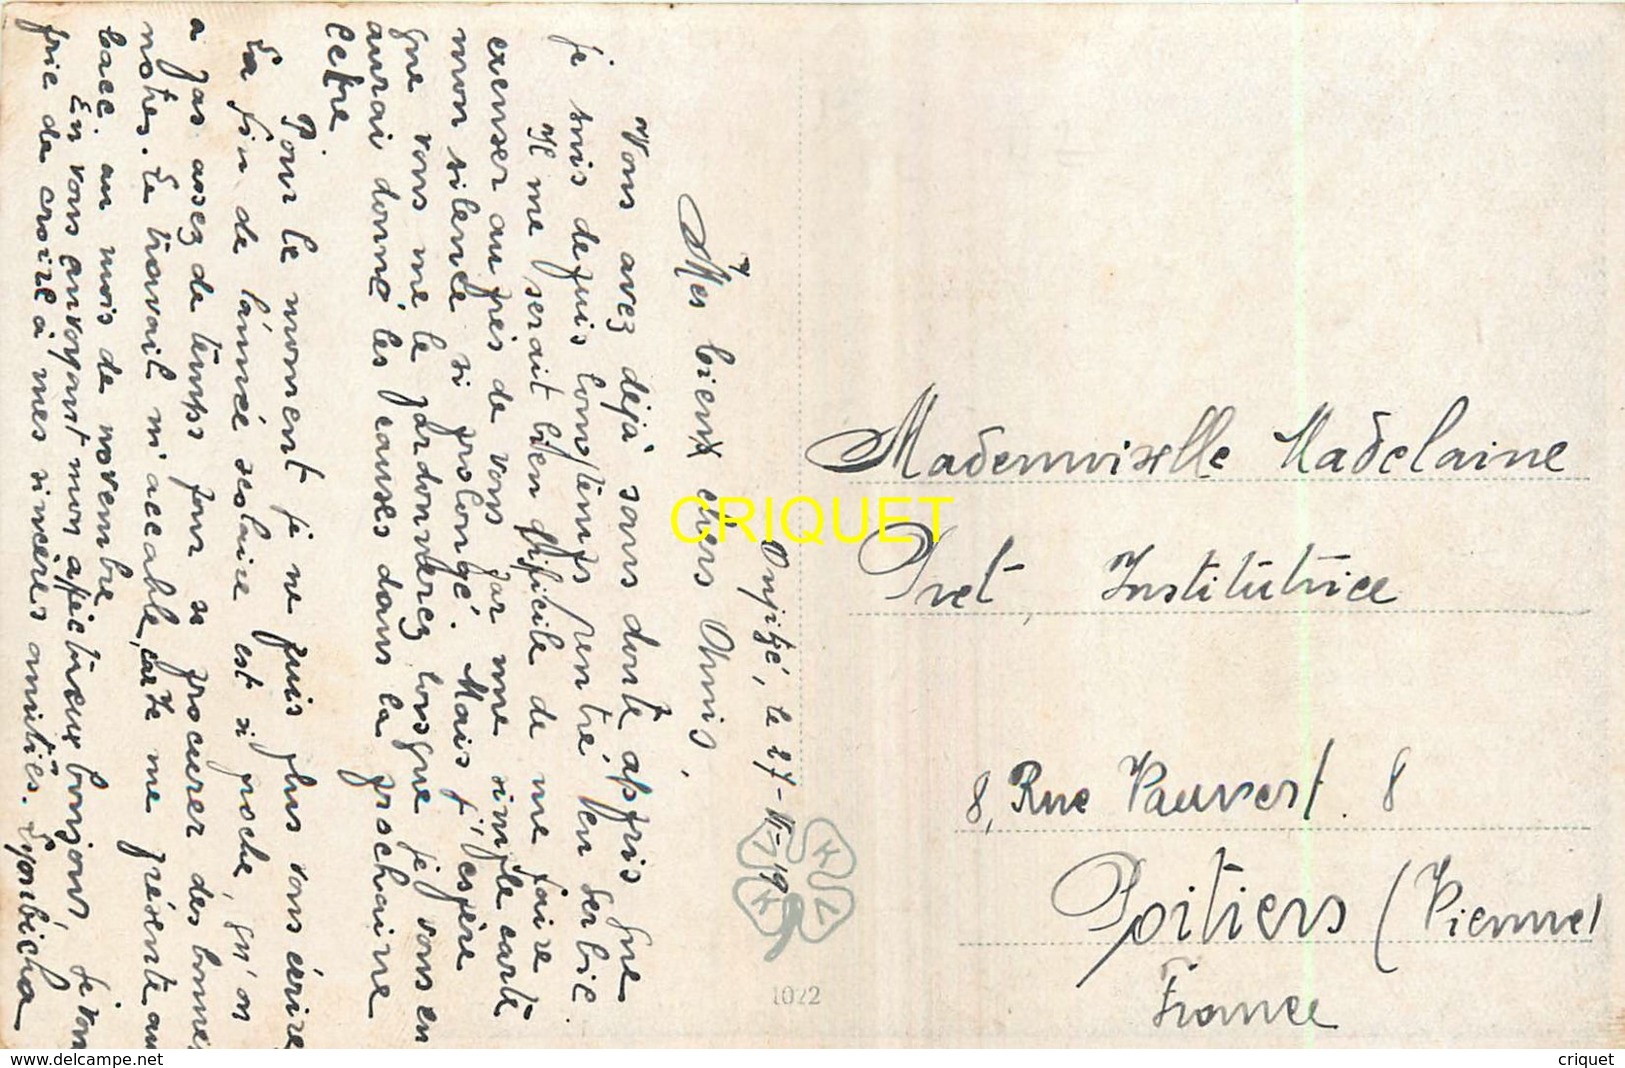 Oujitzé, le 27-VI-19
Mes bien chers Amis,
Vous avez déjà sans doute appris que
je suis depuis longtemps rentré en Serbie.
Il me serait bien difficile de me faire
excuser auprès de vous par une simple carte
mon silence si prolongé. Mais j'espère
que vous me le pardonnerez lorsque je vous en
aurai donné les causes dans la prochaine
lettre
Pour le moment je ne puis plus vous écrire
La fin de l'année scolaire est si proche, qu'on
a pas assez de temps pour se procurer des bonnes
notes. Le travail m'accable, car je me présente au
bacc. au mois de novembre
En vous envoyant mon affectueux bonjour, je vous
prie de croire à mes sincères amitiés.
Mademoiselle Madelaine
Pret, Institutrice
8, Rue Vauvert 8
Poitiers (Vienne)
France
1022
CRIQUET
criquet
delcampe.net